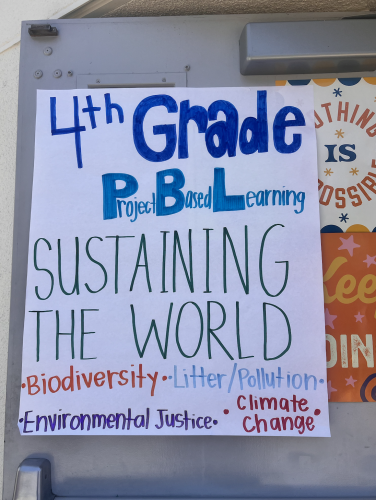 4th Grade
Project Based Learning
SUSTAINING
THE WORLD
•Biodiversity• •Litter/Pollution•
•Environmental Justice• •Climate Change•
IS